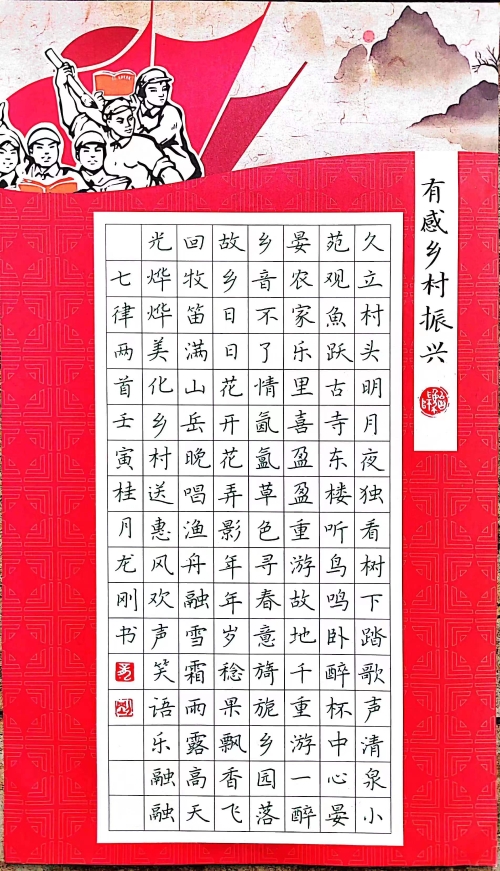 有感乡村振兴
久立村头明月夜独看树下踏歌声清泉小
苑观魚跃古寺东楼听鸟鸣卧醉杯中心晏
晏农家乐里喜盈盈重游故地千重游一醉
乡音不了情氤氲草色寻春意旖旎乡园落
故乡日日花开花弄影年年岁稔果飘香飞
回牧笛满山岳晚唱渔舟融雪霜雨露高天
光烨烨美化乡村送惠风欢声笑语乐融融
七律两首壬寅桂月龙刚书